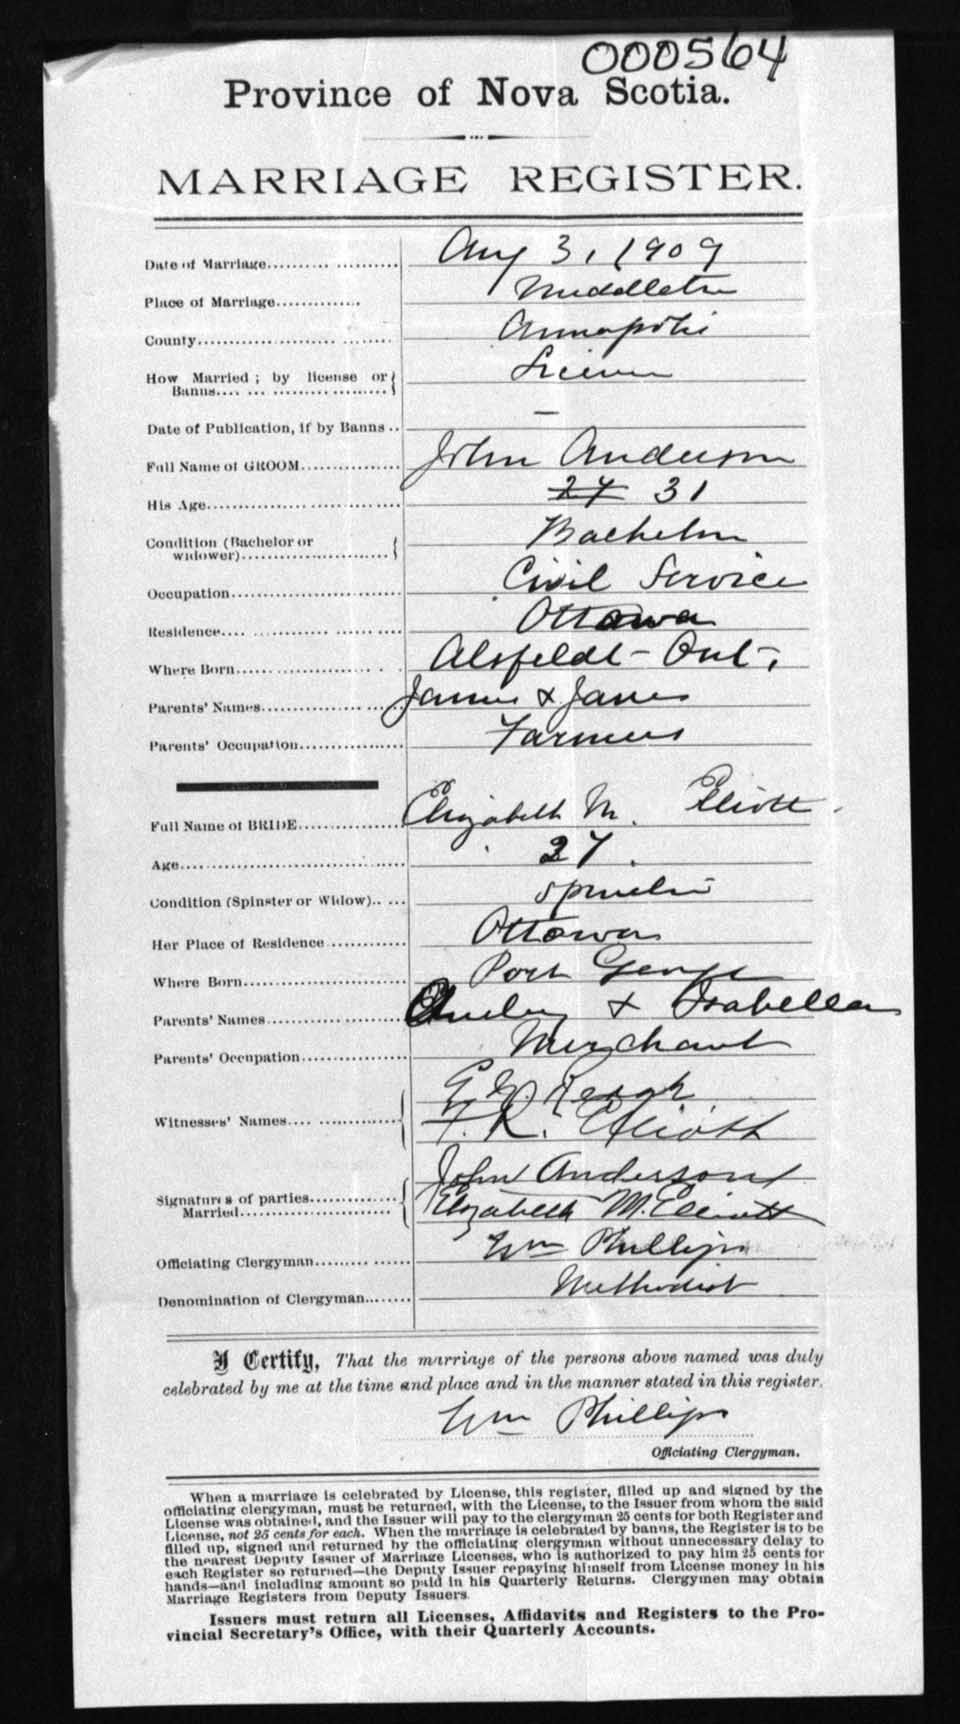 000564
Province of Nova Scotia.
MARRIAGE REGISTER.
Date of Marriage.................... Aug 3, 1909
Place of Marriage............. Middleton
County.............................. Annapolis
How Married ; by license or Banns.............................. License
Date of Publication, if by Banns .. —
Full Name of GROOM................ John Anderson
His Age.............................. 27 31
Condition (Bachelor or widower)........................ Bachelor
Occupation........................... Civil Service
Residence.... ........................ Ottawa
Where Born........................ Alsfeldt - Ont.
Parents' Names..................... James & Jane
Parents' Occupation................. Farmers
Full Name of BRIDE............... Elizabeth M. Elliott
Age................................. 27.
Condition (Spinster or Widow)..... Spinster
Her Place of Residence ............ Ottawa
Where Born......................... Port George
Parents' Names.................... & Isabella
Parents' Occupation............... Merchant
Witnesses' Names.... .............
F. R. Elliott
Signatures of parties............. John Anderson
Married......................... Elizabeth M. Elliott
Officiating Clergyman.............. Wm Phillips
Denomination of Clergyman........ Methodist
I Certify, That the marriage of the persons above named was duly
celebrated by me at the time and place and in the manner stated in this register.
Wm Phillips
Officiating Clergyman.
When a marriage is celebrated by License, this register, filled up and signed by the
officiating clergyman, must be returned, with the License, to the Issuer from whom the said
License was obtained, and the Issuer will pay to the clergyman 25 cents for both Register and
License, not 25 cents for each. When the marriage is celebrated by banns, the Register is to be
filled up, signed and returned by the officiating clergyman without unnecessary delay to
the nearest Deputy Issuer of Marriage Licenses, who is authorized to pay him 25 cents for
each Register so returned—the Deputy Issuer repaying himself from License money in his
hands—and including amount so paid in his Quarterly Returns. Clergymen may obtain
Marriage Registers from Deputy Issuers.
Issuers must return all Licenses, Affidavits and Registers to the Pro-
vincial Secretary's Office, with their Quarterly Accounts.